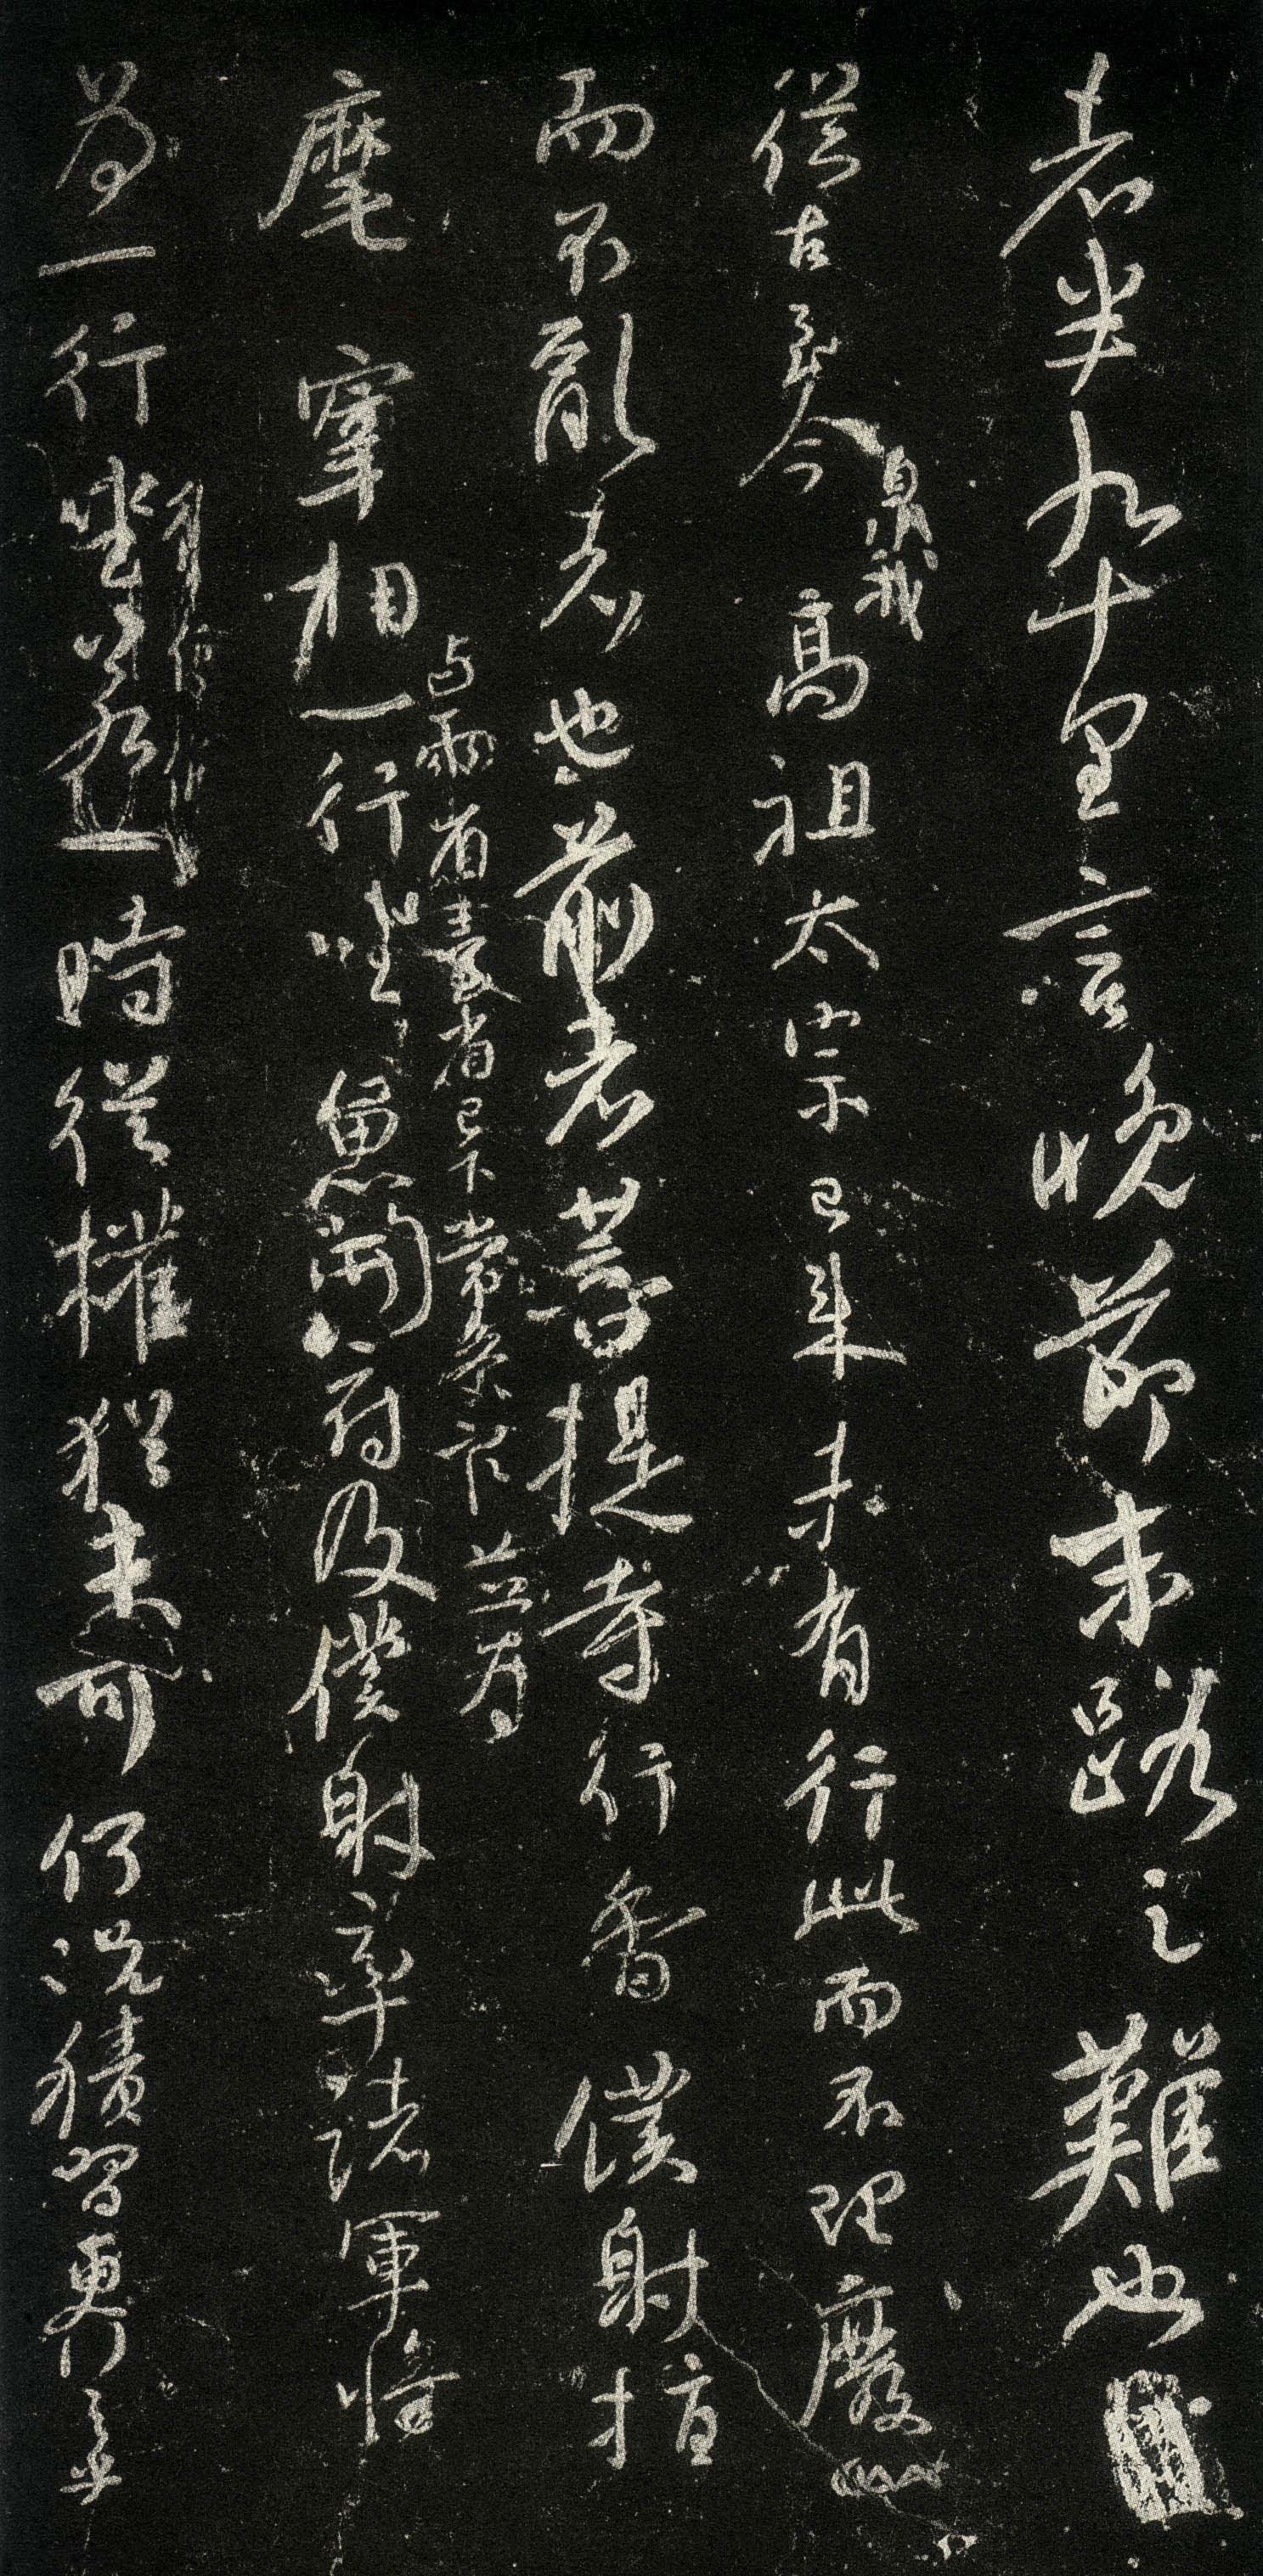 者半九十里言晚節末路之難也
從古至今
暨我
高祖太宗已來未有行此而不理廢
而不亂者也前者菩提寺行香僕射指
麾宰相
與兩省臺省已下常參官並為
一行坐魚開府及僕射率諸軍將
為一行坐若以為一時從權猶未可何況積習更行之乎